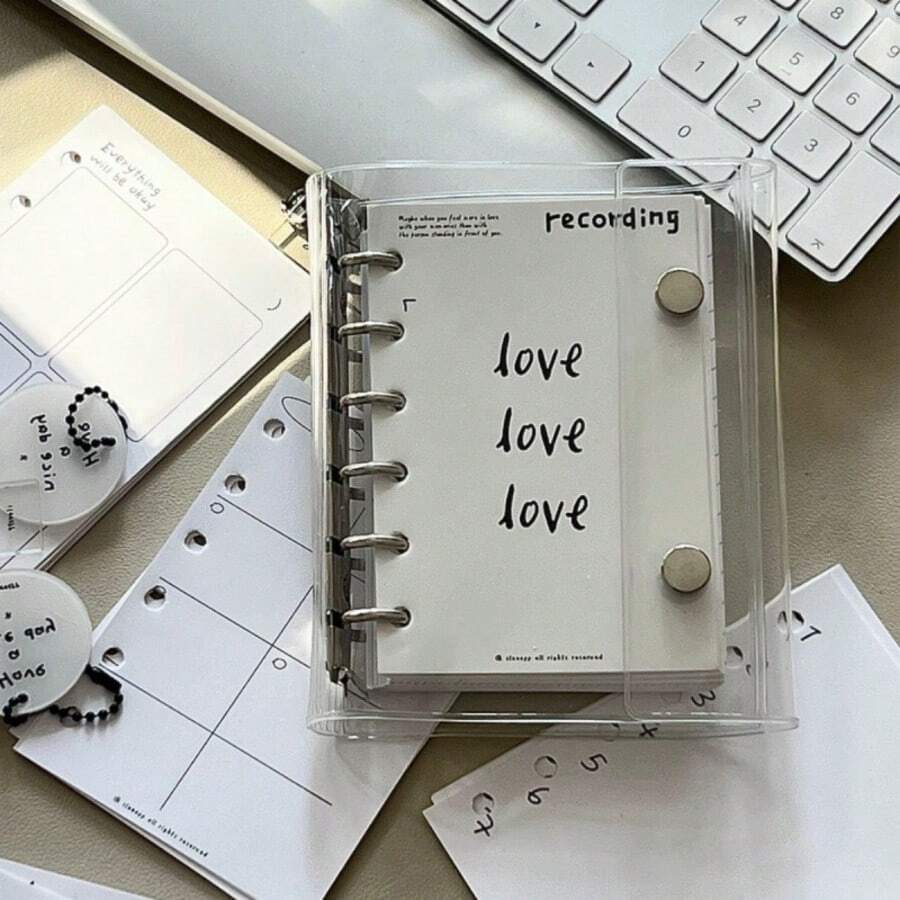 Everything
will be okay
Maybe when you feel more in love
with your memories than with
the person standing in front of you.
recording
love
love
love
all rights reserved
Have
a
nice day
*
Have
a
day
*
all rights reserved
7
3
x
5
6
x
4
8
1
5
9
2
6
0
3